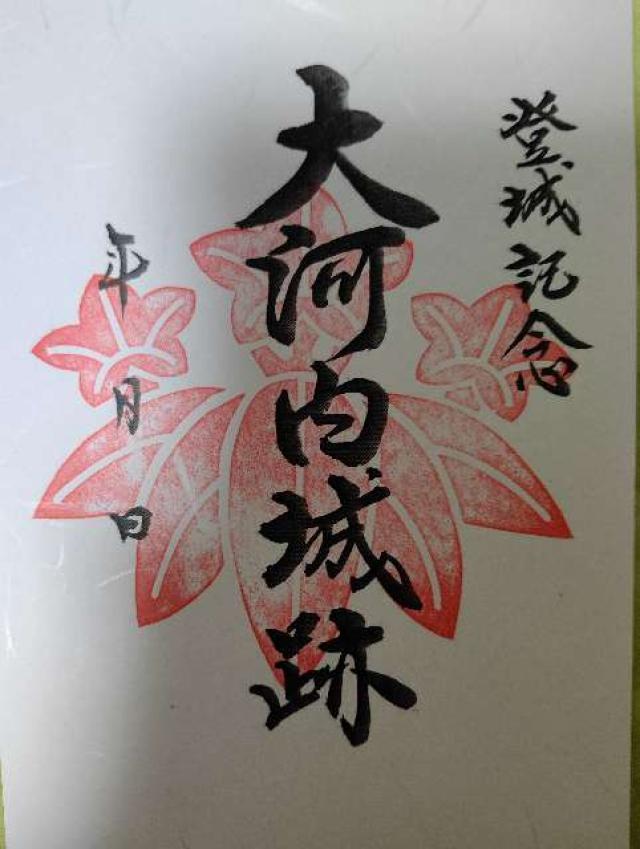 登城記念
大河内城跡
年月日